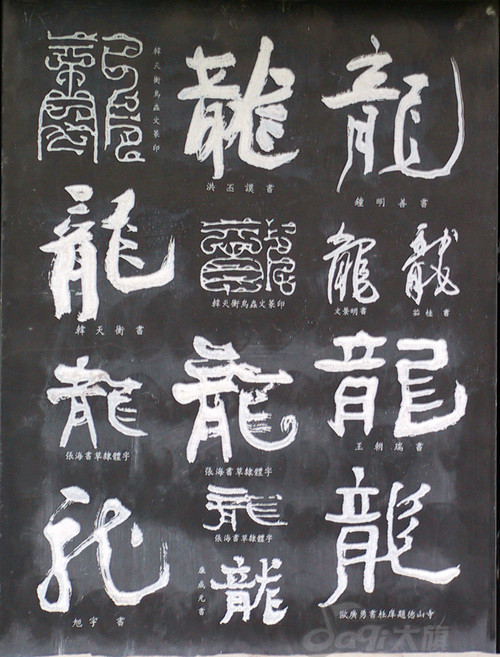 龍
韓天衡鳥蟲文篆印
龍
洪丕謨書
龍
鍾明善書
龍
韓天衡書
龍
韓天衡鳥蟲文篆印
龍
文景明書
龍
茹桂書
龍
張海書草隸體字
龍
張海書草隸體字
龍
王朝瑞書
龙
旭宇書
龍
張海書草隸體字
龍
龍
歐廣勇書杜庠題德山寺
大旗